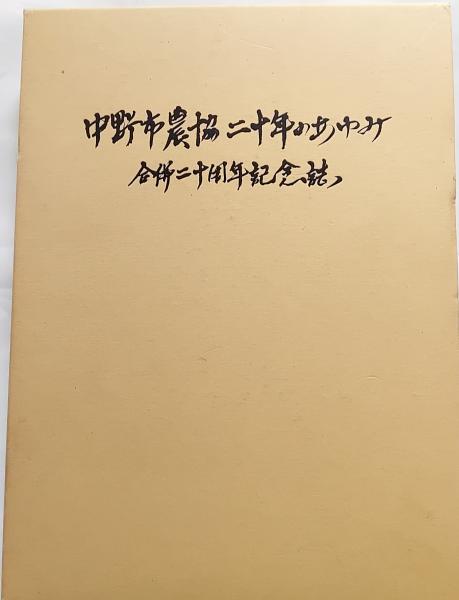 中野市農協二十年のあゆみ
合併二十周年記念誌